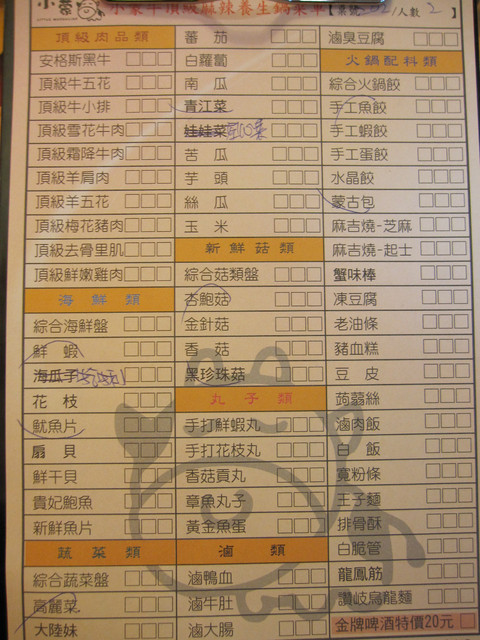 小蒙牛頂級麻辣養生鍋菜單【桌號 /人數2】
頂級肉品類
安格斯黑牛
頂級牛五花
頂級牛小排
頂級雪花牛肉
頂級霜降牛肉
頂級羊肩肉
頂級羊五花
頂級梅花豬肉
頂級去骨里肌
頂級鮮嫩雞肉
海鮮類
綜合海鮮盤
鮮蝦
海瓜子
花枝
魷魚片
扇貝
鮮干貝
貴妃鮑魚
新鮮魚片
蔬菜類
綜合蔬菜盤
高麗菜
大陸妹
蕃茄
白蘿蔔
南瓜
青江菜
娃娃菜
苦瓜
芋頭
絲瓜
玉米
新鮮菇類
綜合菇類盤
杏鮑菇
金針菇
香菇
黑珍珠菇
丸子類
手打鮮蝦丸
手打花枝丸
香菇貢丸
章魚丸子
黃金魚蛋
滷類
滷鴨血
滷牛肚
滷大腸
滷臭豆腐
火鍋配料類
綜合火鍋餃
手工魚餃
手工蝦餃
手工蛋餃
水晶餃
蒙古包
麻吉燒-芝麻
麻吉燒-起士
蟹味棒
凍豆腐
老油條
豬血糕
豆皮
蒟蒻絲
滷肉飯
白飯
寬粉條
王子麵
排骨酥
白脆管
龍鳳筋
讚岐烏龍麵
金牌啤酒特價20元